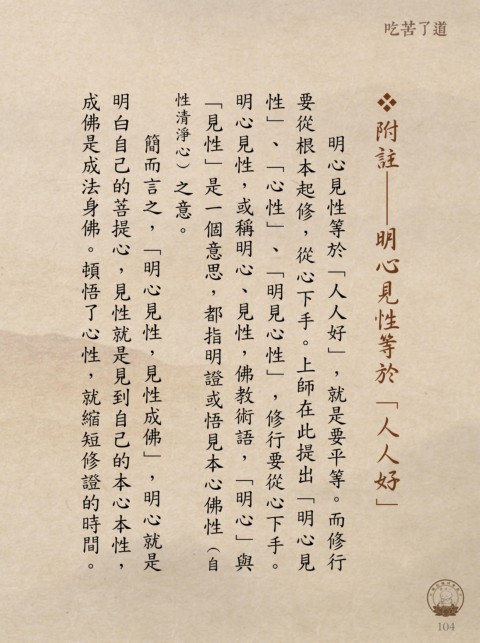 吃苦了道
❖附註——明心見性等於「人人好」
明心見性等於「人人好」，就是要平等。而修行
要從根本起修，從心下手。上師在此提出「明心見
性」、「心性」、「明見心性」，修行要從心下手。
明心見性，或稱明心、見性，佛教術語，「明心」與
「見性」是一個意思，都指明證或悟見本心佛性（自
性清淨心）之意。
簡而言之，「明心見性，見性成佛」，明心就是
明白自己的菩提心，見性就是見到自己的本心本性，
成佛是成法身佛。頓悟了心性，就縮短修證的時間。
104